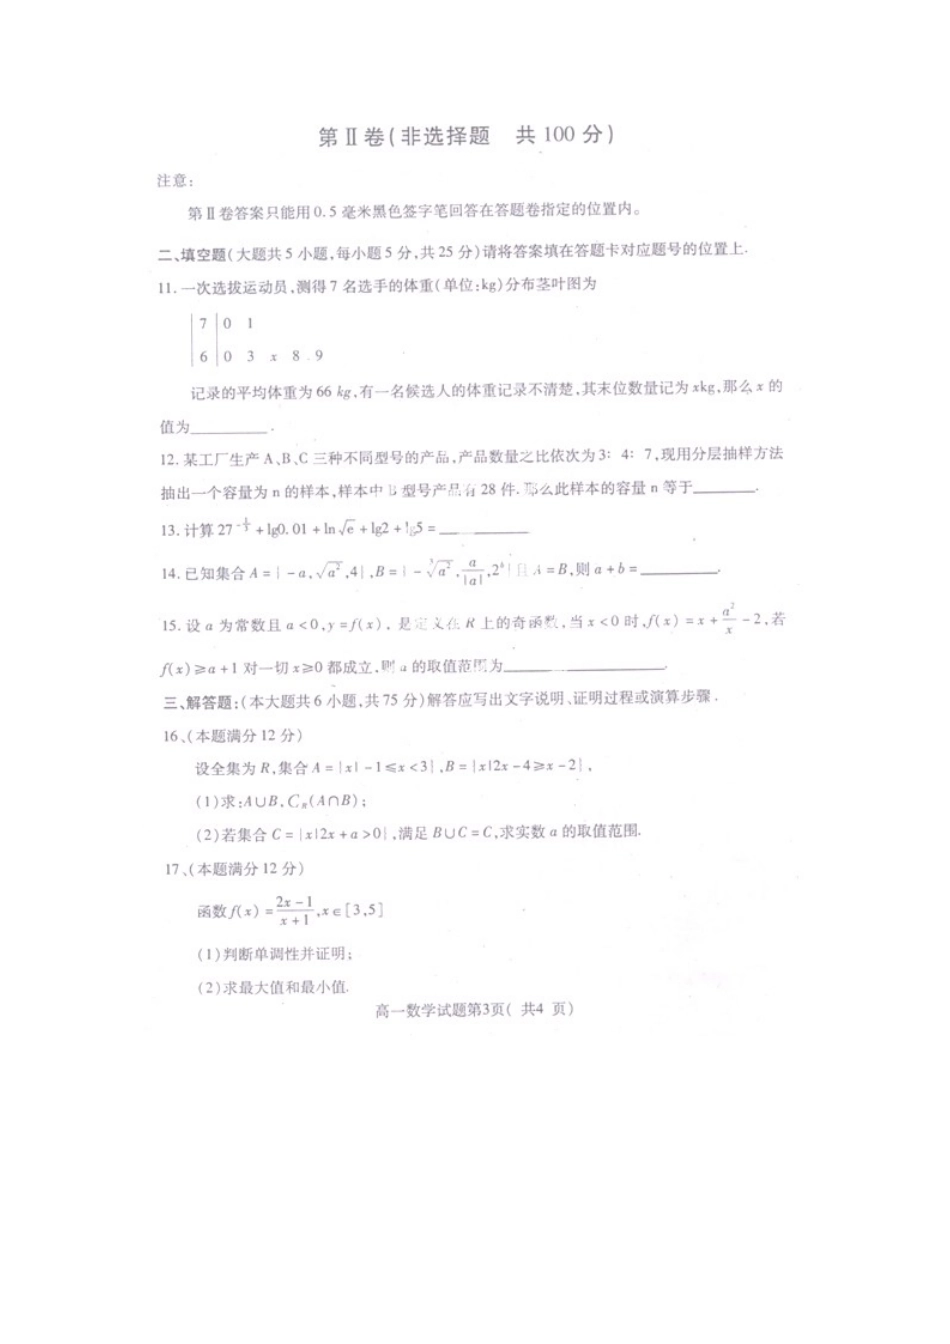 第Ⅱ卷(非选择题 共100分)
注意:
第Ⅱ卷答案只能用0.5毫米黑色签字笔回答在答题卷指定的位置内。
二、填空题(大题共5小题,每小题5分,共25分)请将答案填在答题卡对应题号的位置上.
11. 一次选拔运动员,测得7名选手的体重(单位:kg)分布茎叶图为
7 0 1
6 0 3 x 8 9
记录的平均体重为66 kg,有一名候选人的体重记录不清楚,其末位数量记为xkg,那么x的
值为________.
12. 某工厂生产A、B、C三种不同型号的产品,产品数量之比依次为3:4:7,现用分层抽样方法
抽出一个容量为n的样本,样本中B型号产品有28件.那么此样本的容量n等于________.
13. 计算27^{-1/3}+lg0.01+ln√e+lg2+lg5=________
14. 已知集合A={-a,√a²,4},B={-∛a³,a/|a|,2^b}且A=B,则a+b=________.
15. 设a为常数且a<0,y=f(x),是定义在R上的奇函数,当x<0时,f(x)=x+a²/x-2,若
f(x)≥a+1对一切x≥0都成立,则a的取值范围为________.
三、解答题:(本大题共6小题,共75分)解答应写出文字说明、证明过程或演算步骤.
16、(本题满分12分)
设全集为R,集合A={x|-1≤x<3},B={x|2x-4≥x-2},
(1)求:A∪B,C_R(A∩B);
(2)若集合C={x|2x+a>0},满足B∪C=C,求实数a的取值范围.
17、(本题满分12分)
函数f(x)=(2x-1)/(x+1),x∈[3,5]
(1)判断单调性并证明;
(2)求最大值和最小值.
高一数学试题第3页( 共4 页)